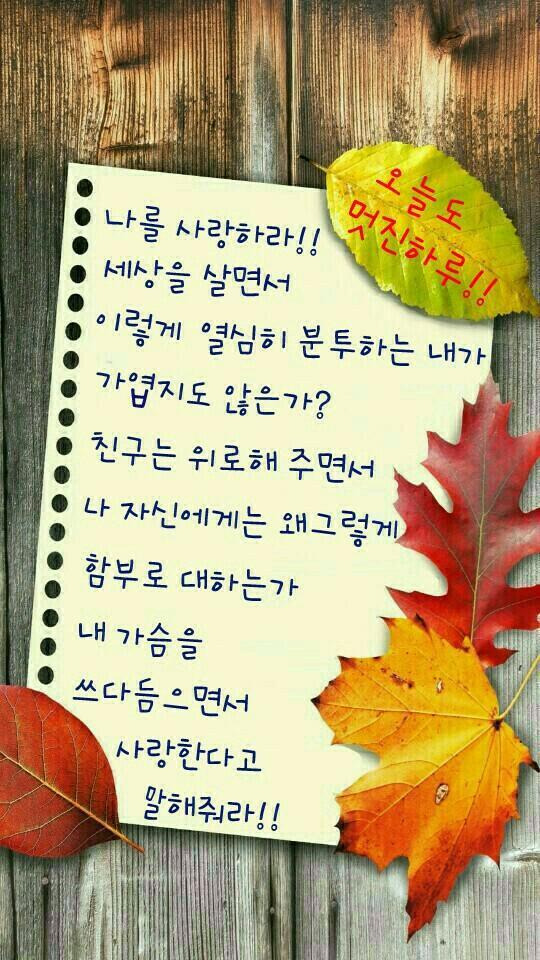 오늘도
멋진하루!!
나를 사랑하라!!
세상을 살면서
이렇게 열심히 분투하는 내가
가엽지도 않은가?
친구는 위로해 주면서
나 자신에게는 왜그렇게
함부로 대하는가
내 가슴을
쓰다듬으면서
사랑한다고
말해줘라!!